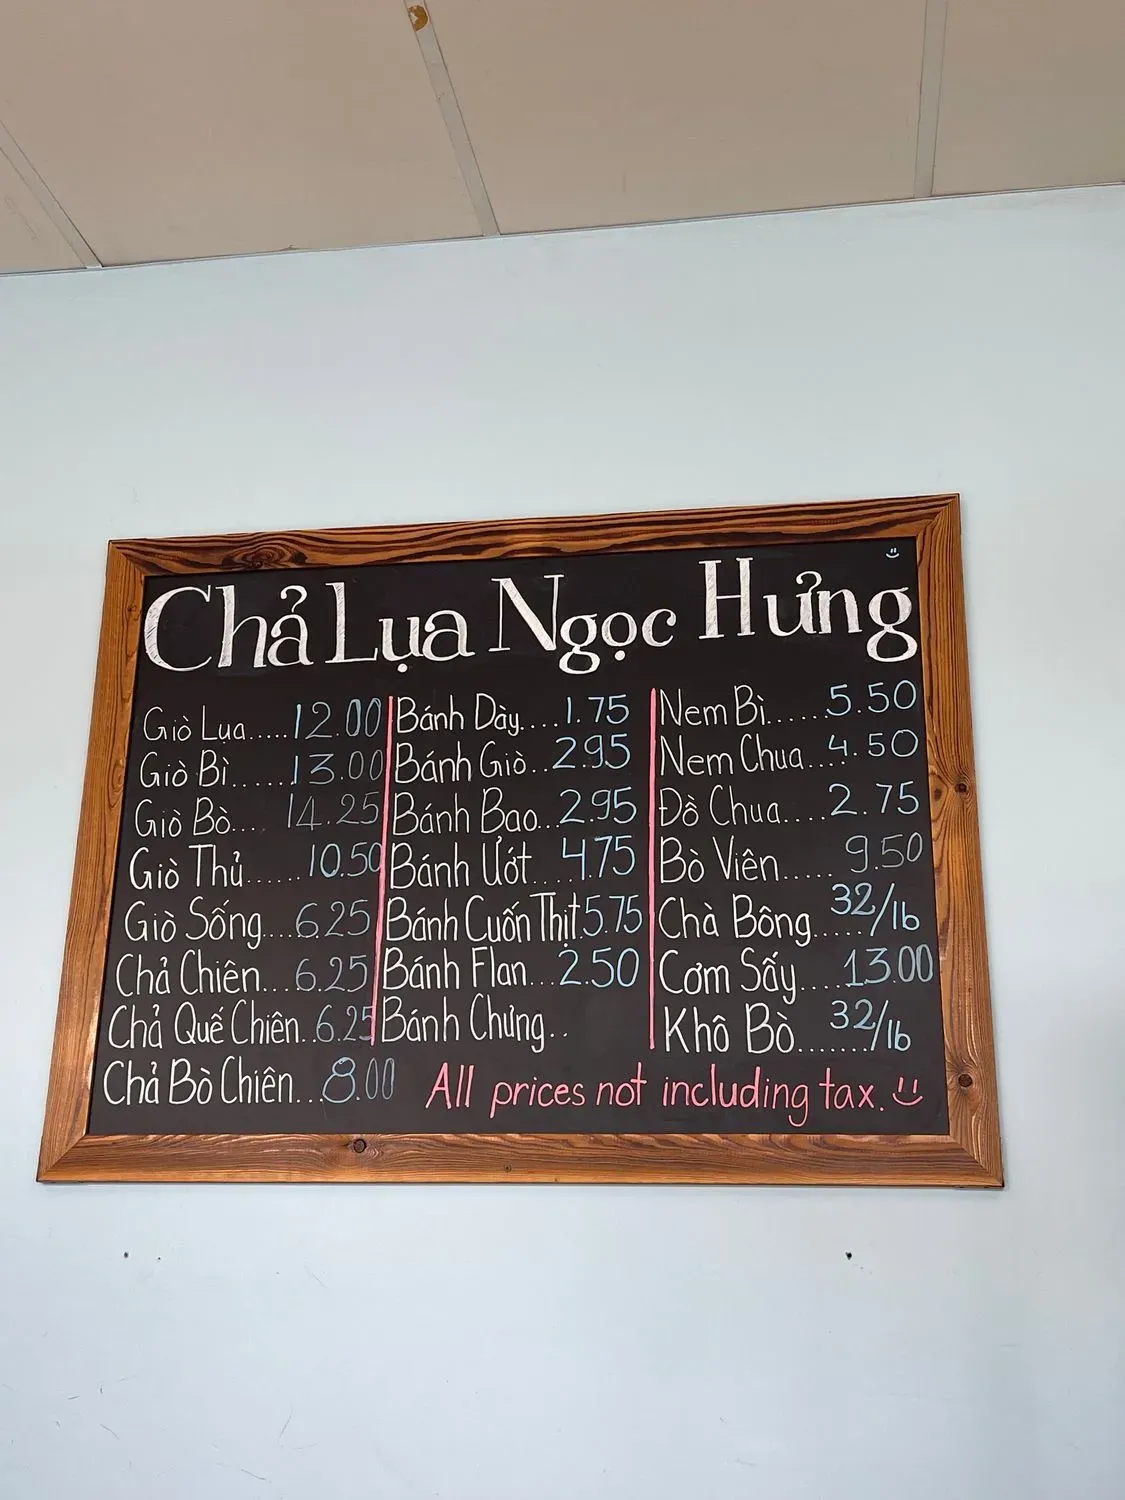 Chả Lụa Ngọc Hưng
Giò Lụa.....12.00
Giò Bì......13.00
Giò Bò.... 14.25
Giò Thủ......10.50
Giò Sống....6.25
Chả Chiên...6.25
Chả Quế Chiên..6.25
Chả Bò Chiên...8.00
Bánh Dày....1.75
Bánh Giò...2.95
Bánh Bao...2.95
Bánh Ướt....4.75
Bánh Cuốn Thịt.5.75
Bánh Flan...2.50
Bánh Chưng..
Nem Bì......5.50
Nem Chua....4.50
Đồ Chua....2.75
Bò Viên...... 9.50
Chà Bông.....32/lb
Cơm Sấy....13.00
Khô Bò.......32/lb
All prices not including tax.